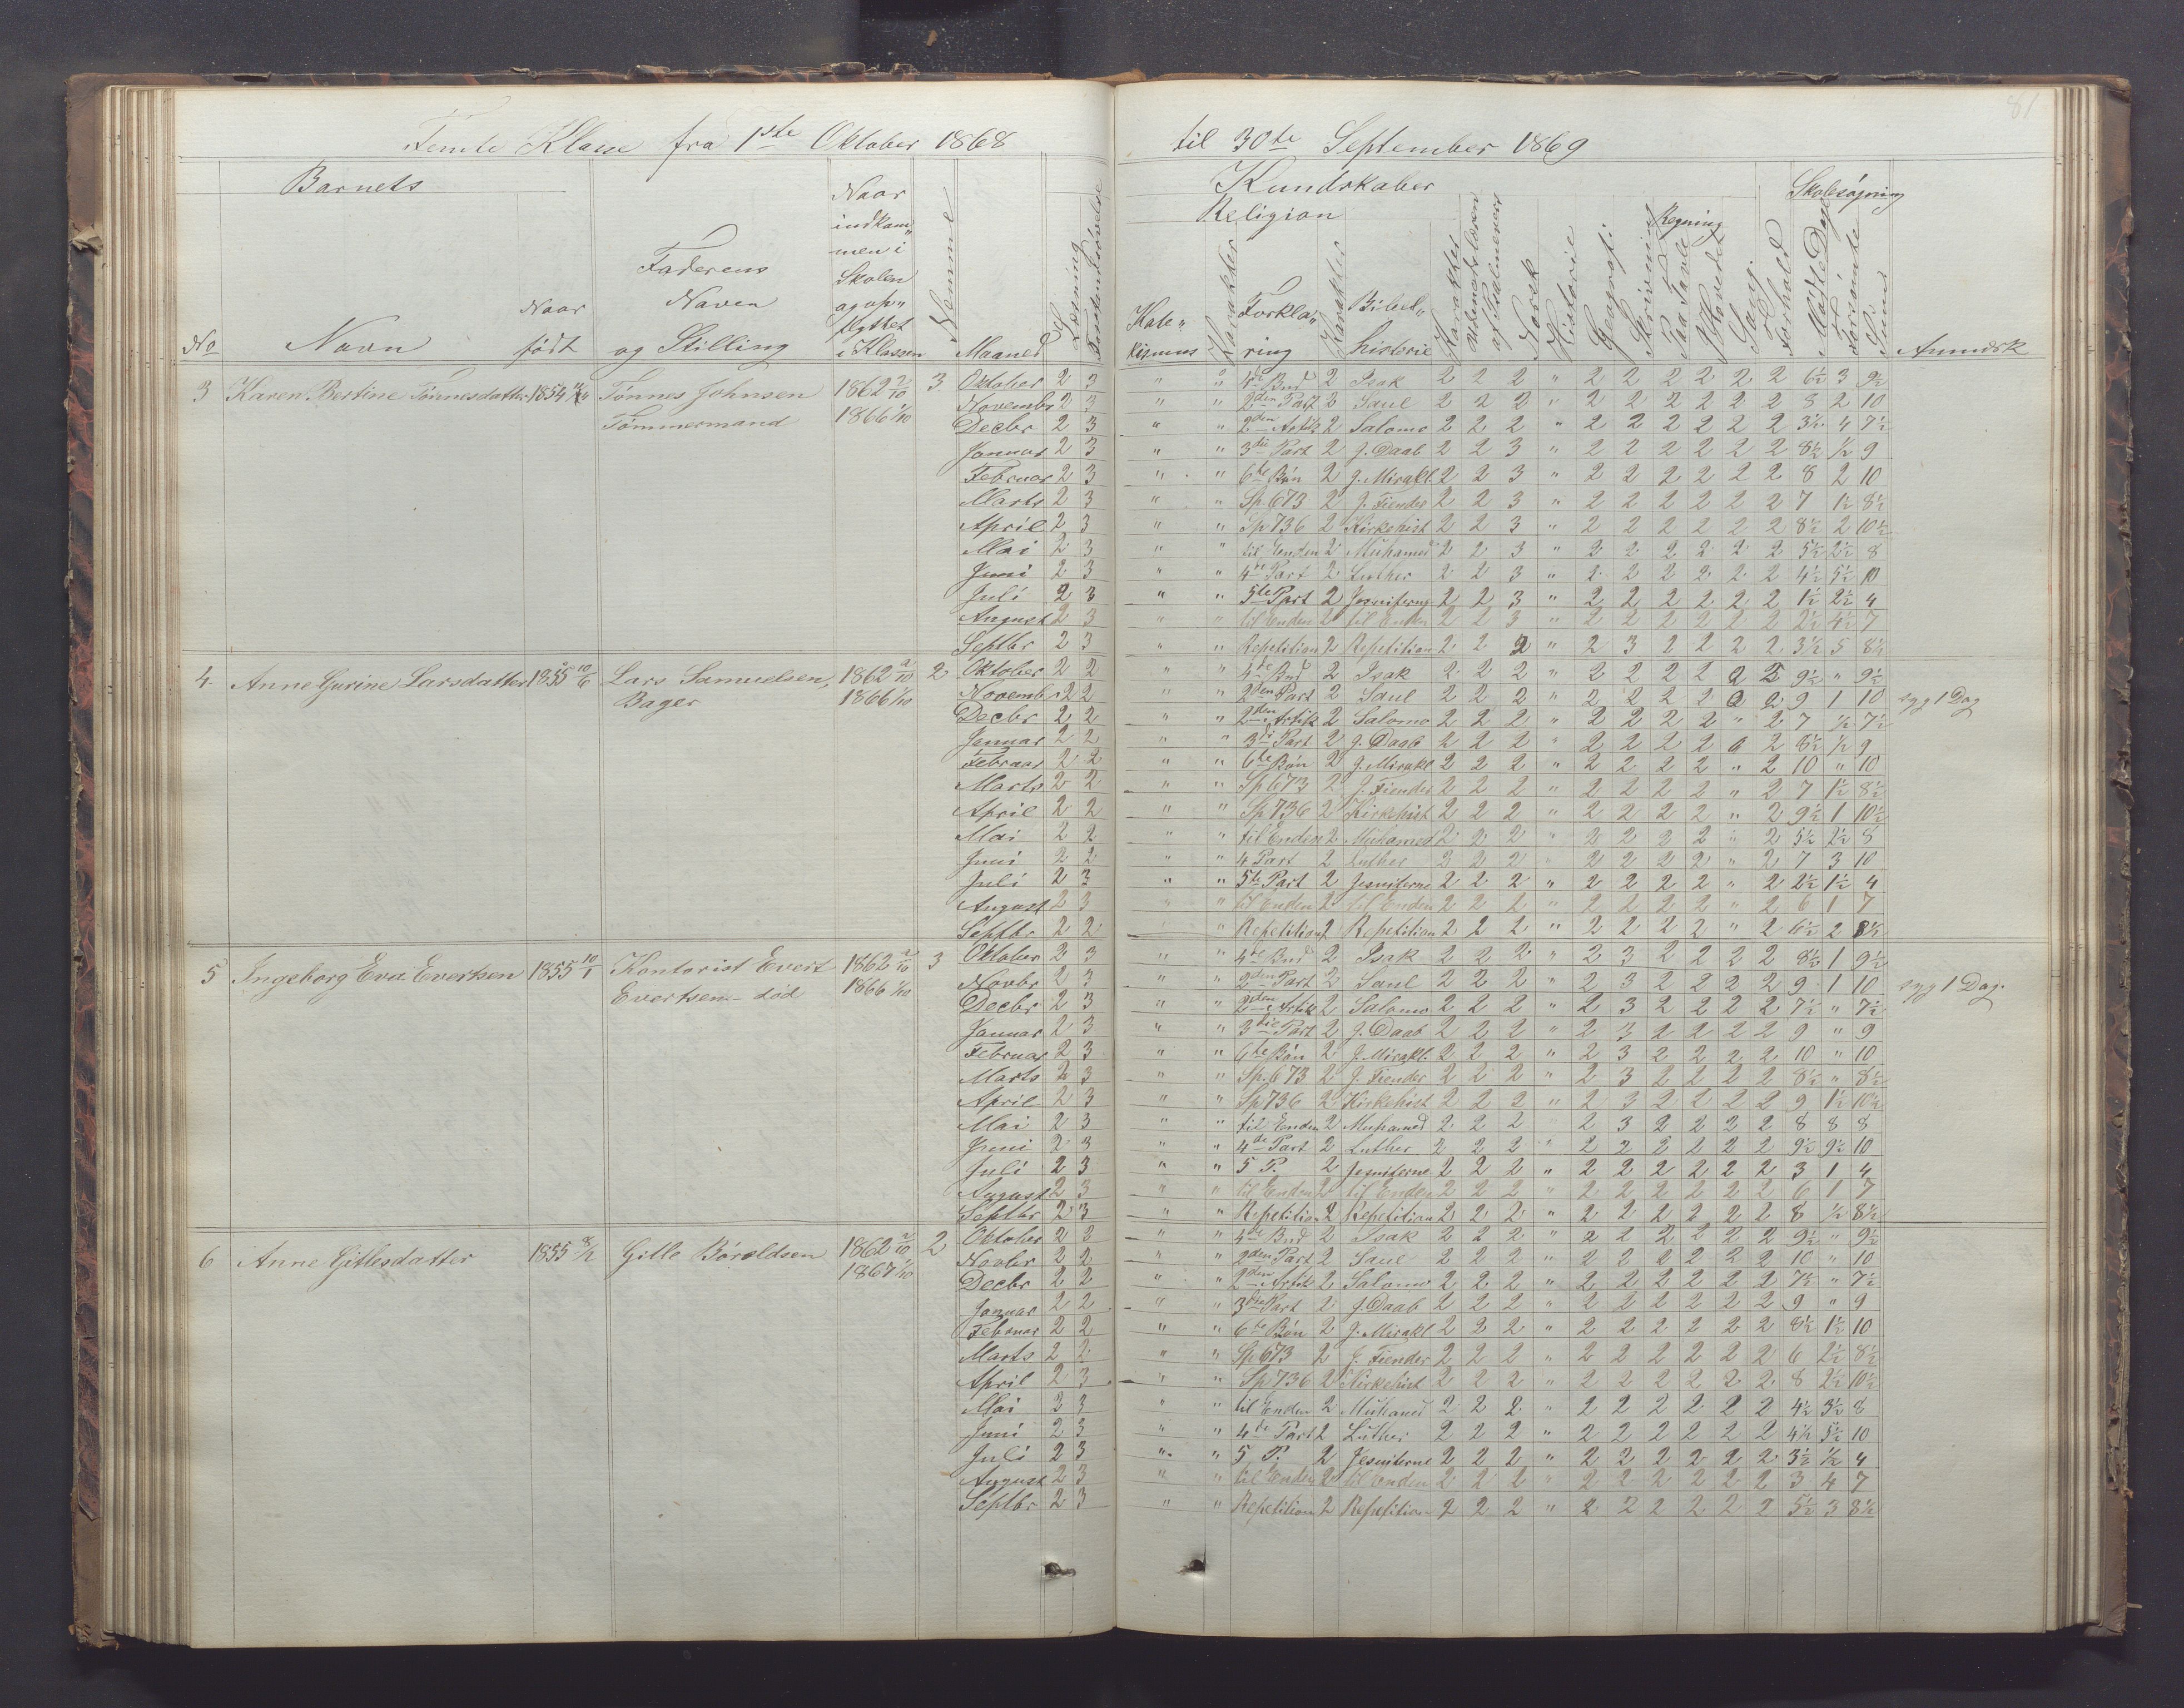 81
Femte Klasse fra 1ste Oktober 1868 til 30te September 1869
Barnets
Kundskaber
Skolesøgning
Religion
Regning
No
Navn
Naar
født
Faderens
Navn
og Stilling
Naar
indkom„
men i
Skolen
og op„
flyttet
i Klassen
Nemme
Maaned
Læsning
Kate„
kismus
Karakter
Forkla„
ring
Karakter
Bibel„
historie
Karakter
Norsk
Historie
Geografi
Skrivning
Paa Tavle
I Hovedet
Sang
Forhold
Mødte Dage
Forsømte
Sum
Anmærk
3 Karen Bertine Tønnesdatter 1854 Tønnes Johnsen 1862 2/10 3 Oktober 2 3 " " 4de Bud 2 Isak 2 2 2 " 2 2 2 2 2 2 6½ 3 9½
Tømmermand 1866 1/10 Novembr 2 3 " " 2den Part 2 Saul 2 2 2 " 2 2 2 2 2 2 8 2 10
Decbr 2 3 " " 2den Artik 2 Salomo 2 2 2 " 2 2 2 2 2 2 3½ 4 7½
Januar 2 3 " " 3die Part 2 J. Daab 2 2 3 " 2 2 2 2 2 2 8½ ½ 9
Februar 2 3 " " 6te Bøn 2 J. Mirakl. 2 2 3 " 2 2 2 2 2 2 8 2 10
Marts 2 3 " " Sp. 673 2 J. Fiender 2 2 3 " 2 2 2 2 2 2 7 1½ 8½
April 2 3 " " Sp 736 2 Kirkehist 2 2 3 " 2 2 2 2 2 2 8½ 2 10½
Mai 2 3 " " til Enden 2 Muhamed 2 2 3 " 2 2 2 2 2 2 5½ 2½ 8
Juni 2 3 " " 4de Part 2 Luther 2 2 3 " 2 2 2 2 2 2 4½ 5½ 10
Juli 2 3 " " 5te Part 2 Jesuiterne 2 2 3 " 2 2 2 2 2 2 1½ 2½ 4
August 2 3 " " til Enden 2 til Enden 2 2 3 " 2 2 2 2 2 2 2½ 4½ 7
Septbr 2 3 " " Repetition 2 Repetition 2 2 2 " 2 3 2 2 2 2 3½ 5 8½
4. Anne Gurine Larsdatter 1855 10/6 Lars Samuelsen, 1862 2/10 2 Oktober 2 2 " " 4de Bud 2 Isak 2 2 2 " 2 2 2 2 2 9½ " 9½
Bager 1866 1/10 Novembr 2 2 " " 2den Part 2 Saul 2 2 2 " 2 2 2 2 2 9 1 10 syg 1 Dag
Decbr 2 2 " " 2den Artik 2 Salomo 2 2 2 " 2 2 2 2 " 2 7 ½ 7½
Januar 2 2 " " 3di Part 2 J. Daab 2 2 2 " 2 2 2 2 2 8½ ½ 9
Februar 2 2 " " 6te Bøn 2 J. Mirakl 2 2 2 " 2 2 2 2 " 2 10 " 10
Marts 2 2 " " Sp 673 2 J. Fiender 2 2 2 " 2 2 2 2 " 2 7 1½ 8½
April 2 2 " " Sp 736 2 Kirkehist 2 2 2 " 2 2 2 2 " 2 9½ 1 10½
Mai 2 2 " " til Enden 2 Muhamed 2 2 2 " 2 2 2 2 " 2 5½ 2½ 8
Juni 2 2 " " 4 Part 2 Luther 2 2 2 " 2 2 2 2 " 2 7 3 10
Juli 2 3 " " 5te Part 2 Jesuiterne 2 2 2 " 2 2 2 2 " 2 2½ 1½ 4
August 2 3 " " til Enden 2 til Enden 2 2 2 " 2 2 2 2 " 2 6 1 7
Septbr 2 2 " " Repetition 2 Repetition 2 2 2 " 2 2 2 2 " 2 6½ 2 8½
5 Ingeborg Eva Evertsen 1855 10/1 Kontorist Evert 1862 2/10 3 Oktober 2 3 " " 4de Bud 2 Isak 2 2 2 " 2 3 2 2 2 2 8½ 1 9½
Evertsen - død 1866 1/10 Novbr 2 3 " " 2den Part 2 Saul 2 2 2 " 2 3 2 2 2 2 9 1 10 syg 1 Dag.
Decbr 2 3 " " 2den Artik 2 Salomo 2 2 2 " 2 3 2 2 2 2 7½ " 7½
Januar 2 3 " " 3die Part 2 J. Daab 2 2 2 " 2 3 2 2 2 2 9 " 9
Februar 2 3 " " 6te Bøn 2 J. Mirakl. 2 2 2 " 2 3 2 2 2 2 10 " 10
Marts 2 3 " " Sp. 673 2 J. Fiender 2 2 2 " 2 3 2 2 2 2 8½ " 8½
April 2 3 " " Sp 736 2 Kirkehist 2 2 2 " 2 3 2 2 2 2 9 1½ 10½
Mai 2 3 " " til Enden 2 Muhamed 2 2 2 " 2 3 2 2 2 2 8 8 8
Juni 2 3 " " 4de Part 2 Luther 2 2 2 " 2 2 2 2 2 2 9½ 9½ 10
Juli 2 3 " " 5 P. 2 Jesuiterne 2 2 2 " 2 2 2 2 2 2 3 1 4
August 2 3 " " til Enden 2 til Enden 2 2 2 " 2 2 2 2 2 2 6 1 7
Septbr 2 3 " " Repetition 2 Repetition 2 2 2 " 2 2 2 2 2 2 8 ½ 8½
6 Anne Gitlesdatter 1855 Gitle Børoldsen 1862 2/10 2 Oktober 2 2 " " 4de Bud 2 Isak 2 2 2 " 2 2 2 2 2 2 9½ " 9½
1867 1/10 Novbr 2 2 " " 2den Part 2 Saul 2 2 2 " 2 2 2 2 2 2 10 " 10
Decbr 2 2 " " 2den Artik 2 Salomo 2 2 2 " 2 2 2 2 2 2 7½ " 7½
Januar 2 2 " " 3die Part 2 J. Daab 2 2 2 " 2 2 2 2 2 2 9 " 9
Februar 2 2 " " 6te Bøn 2 J. Mirakl 2 2 2 " 2 2 2 2 2 2 8½ 1½ 10
Marts 2 2 " " Sp 673 2 J. Fiender 2 2 2 " 2 2 2 2 2 2 6 2½ 8½
April 2 3 " " Sp 736 2 Kirkehist 2 2 2 " 2 2 2 2 2 2 8 2½ 10½
Mai 2 3 " " til Enden 2 Muhamed 2 2 2 " 2 2 2 2 2 2 4½ 3½ 8
Juni 2 3 " " 4de Part 2 Luther 2 2 2 " 2 2 2 2 2 2 4½ 5½ 10
Juli 2 3 " " 5 P. 2 Jesuiterne 2 2 2 " 2 2 2 2 2 2 3½ ½ 4
August 2 3 " " til Enden 2 til Enden 2 2 2 " 2 2 2 2 2 2 3 4 7
Septbr 2 3 " " Repetition 2 Repetition 2 2 2 " 2 2 2 2 2 2 5½ 3 8½